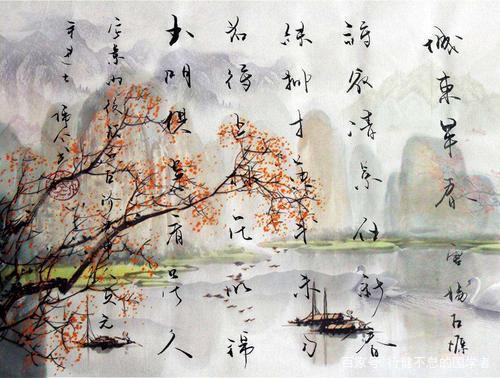 城東早春 唐 楊巨源
詩家清景在新春
綠柳才黃半未勻
若待上林花似錦
出門俱是看花人
百家号/行健不息的国学者